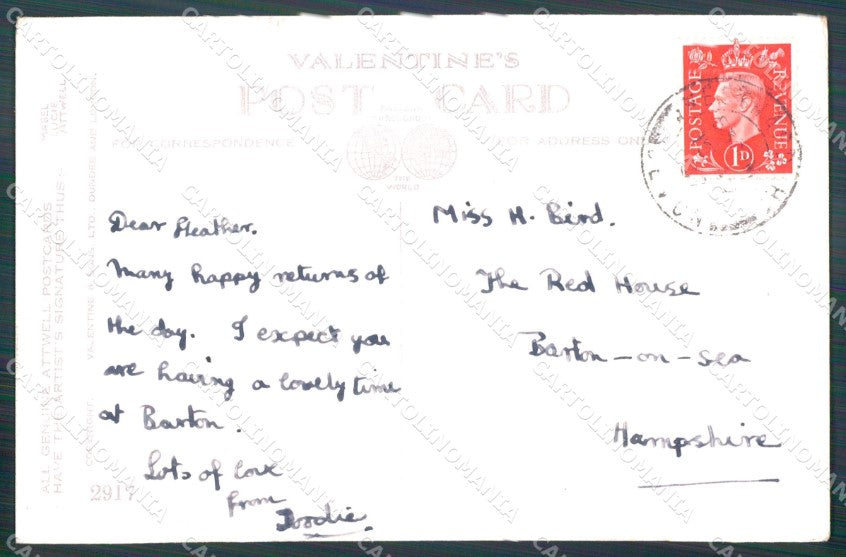 VALENTINE'S
POST CARD
FOR CORRESPONDENCE
FOR ADDRESS ON
THE WORLD
POSTAGE REVENUE
1D
MABEL LUCIE ATTWELL
ALL GENUINE ATTWELL POSTCARDS
HAVE THE ARTIST'S SIGNATURE THUS:-
COPYRIGHT. VALENTINE & SONS LTD. DUNDEE AND LONDON.
Dear Heather.
Many happy returns of
the day. I expect you
are having a lovely time
at Barton.
Lots of love
from
2917
Miss H. Bird.
The Red House
Barton-on-sea
Hampshire
CARTOLINOMANIA